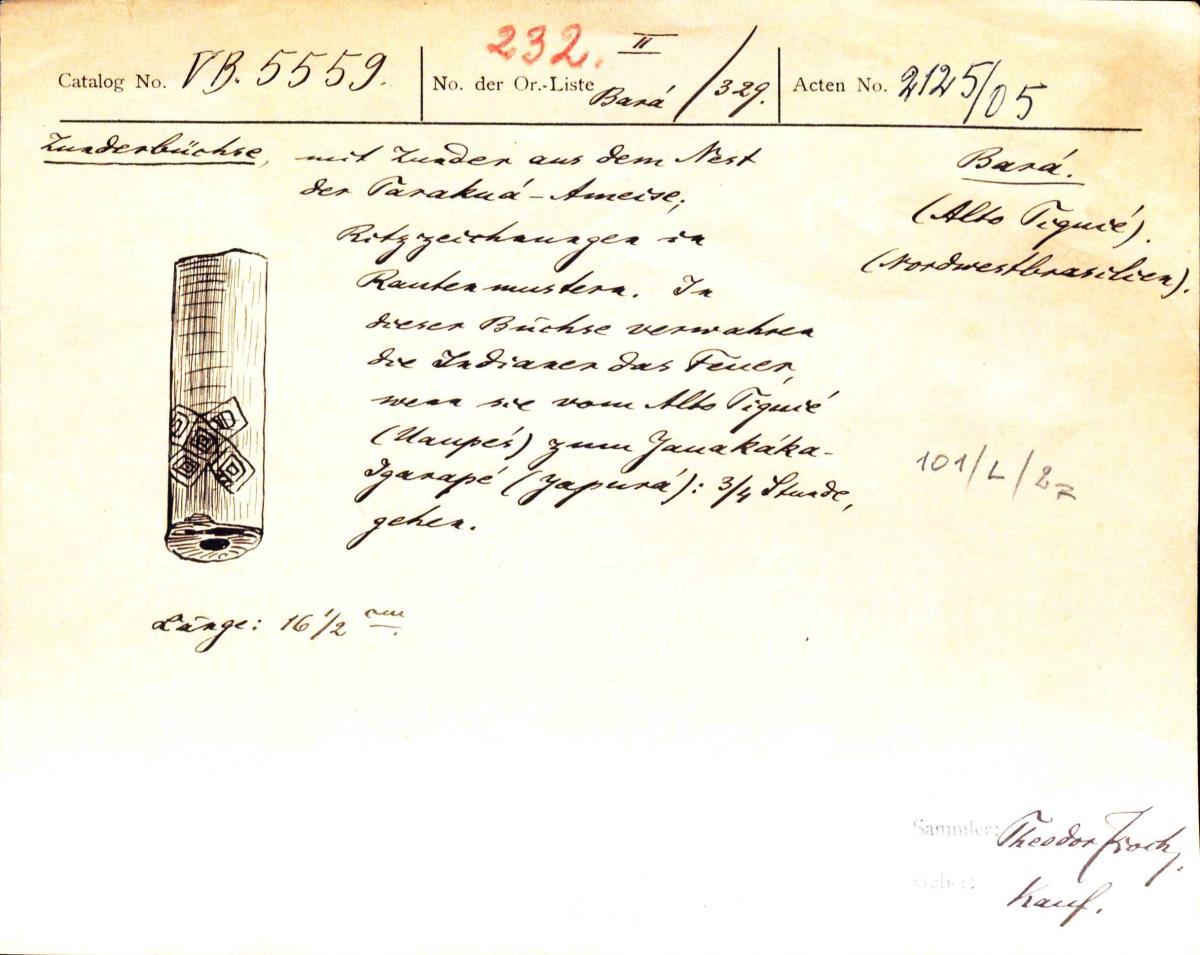 232. II
Catalog No. VB. 5559.
No. der Or.-Liste Bará / 329.
Acten No. 2125/05
Zunderbüchse, mit Zunder aus dem Nest
der Tarakuá-Ameise;
Ritzzeichnungen in
Rautenmustern. In
dieser Büchse verwahren
die Indianer das Feuer,
wenn sie vom Alto Tiquié
(Uaupés) zum Yauakáka-
Igarapé (Yapurá): 3/4 Stunde,
gehen.
Bará.
(Alto Tiquié).
(Nordwestbrasilien).
101/L/27
Länge: 16 1/2 cm.
Sammler: Theodor Koch,
Geber: Kauf.